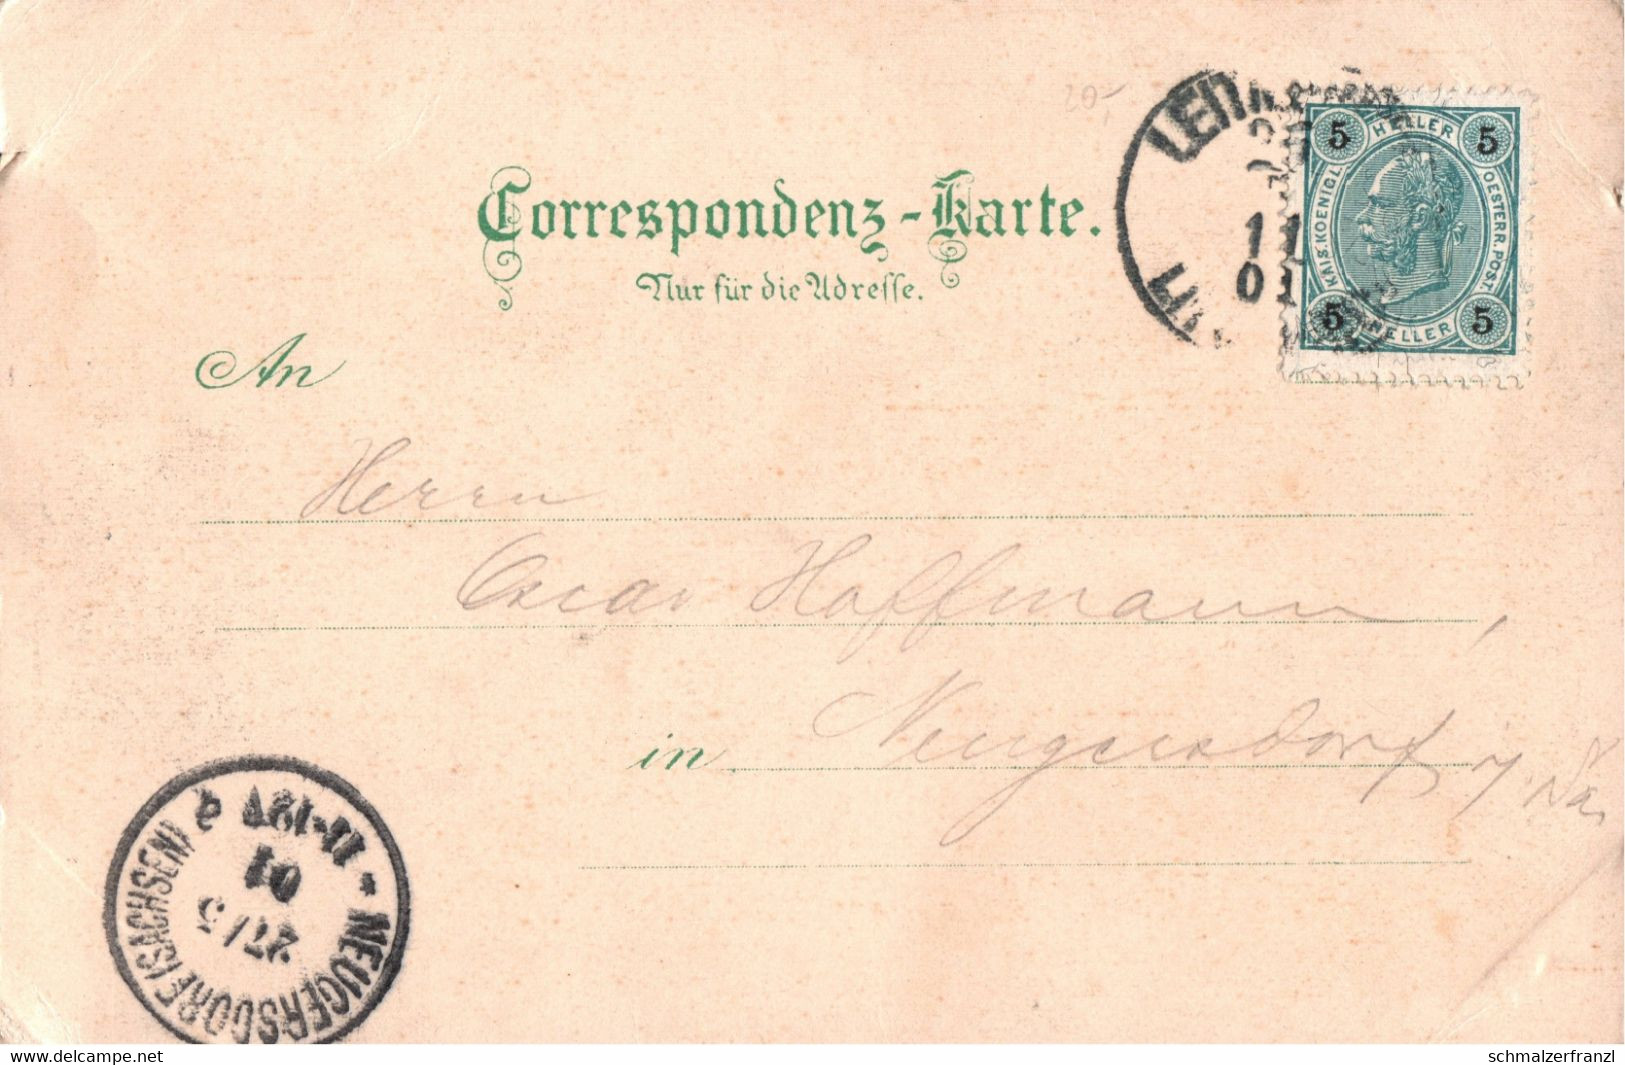 20.-
LEIT
11
01
5 HELLER 5
KAIS. KOENIGL. OESTERR. POST.
5 HELLER 5
Correspondenz-Karte.
Nur für die Adresse.
An
Herrn
Oscar Hoffmann,
in Neugersdorf i/ Sa.
* NEUGERSDORF (SACHSEN)
27/5
01
11-12V
delcampe.net
schmalzerfranzl